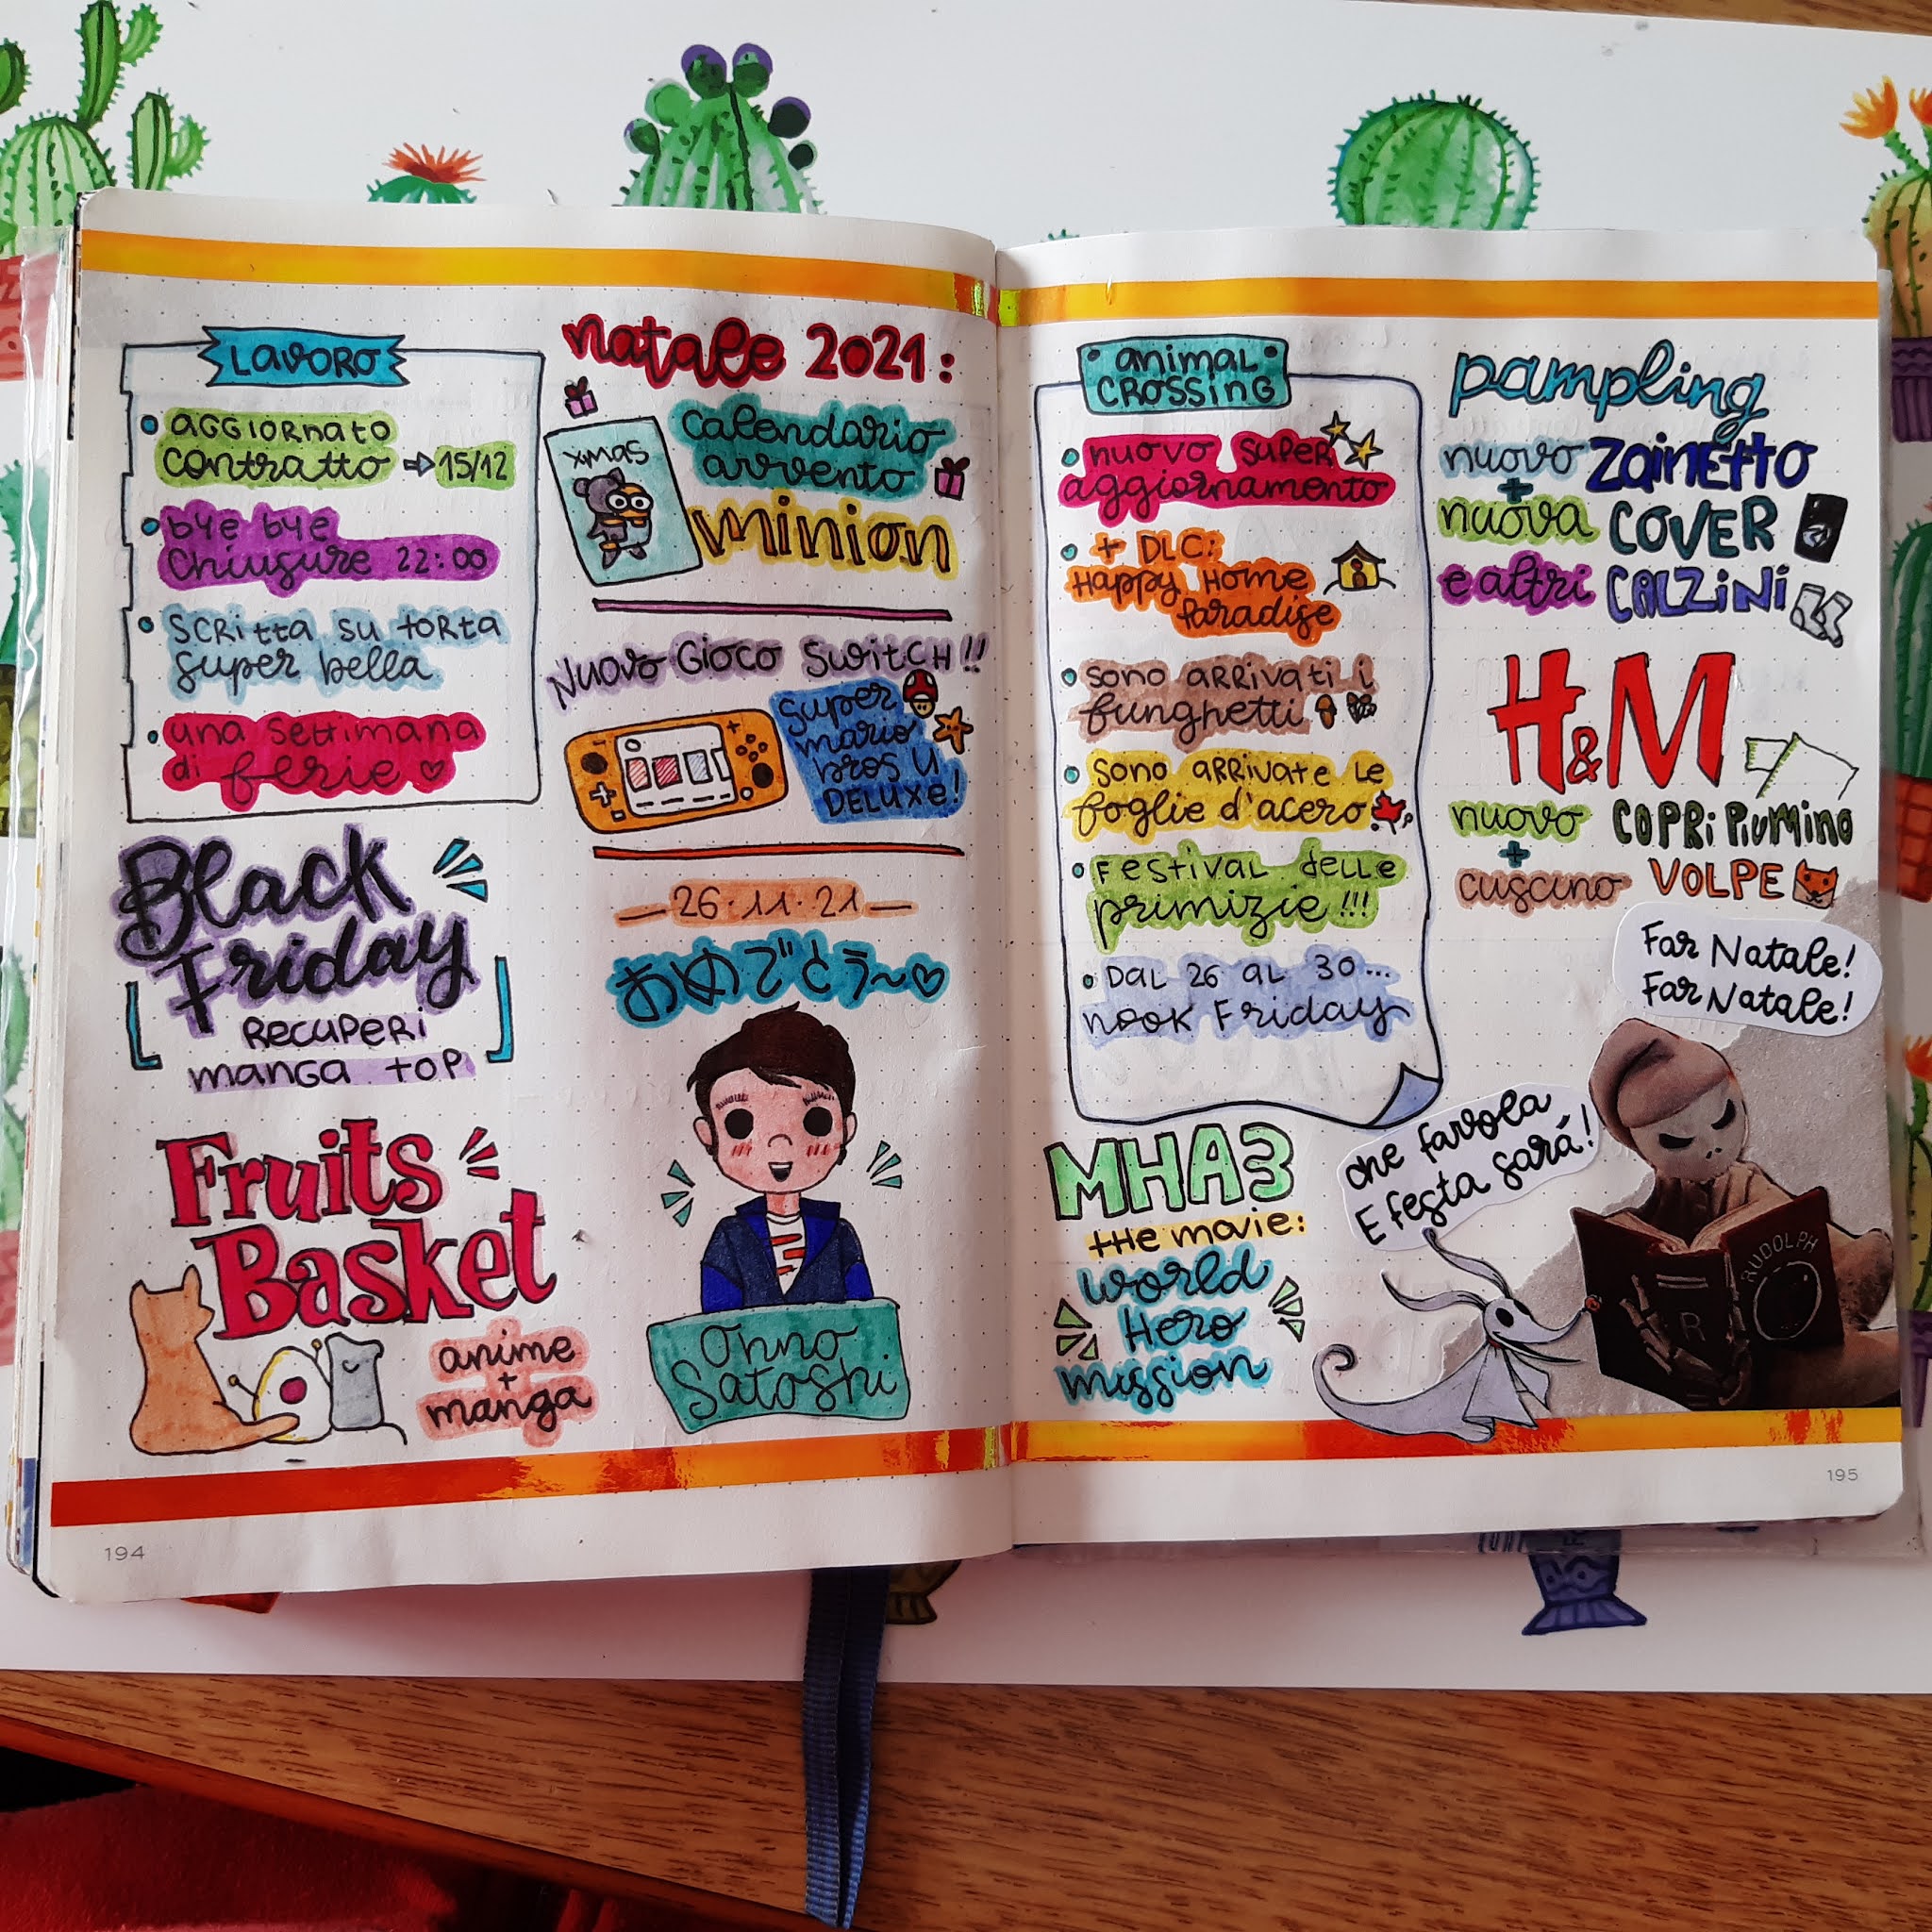 LAVORO
AGGIORNATO
contratto ⇨ 15/12
bye bye
chiusure 22:00
SCRITTA SU TORTA
super bella
una settimana
di ferie ♡
Black
Friday
RECUPERI
manga TOP
Fruits
Basket
anime
+
manga
natale 2021:
XMAS
calendario
avvento
minion
Nuovo Gioco Switch!!
super
mario
bros U
DELUXE!
— 26·11·21 —
おめでとう~♡
Ohno
Satoshi
194
animal
CROSSING
nuovo super
aggiornamento
+ DLC:
Happy Home
Paradise
sono ARRIVATI i
funghetti
Sono ARRIVATE LE
foglie d'acero
FESTIVAL delle
primizie!!!
DAL 26 AL 30...
nook Friday
MHA3
the movie:
world
Hero
mission
pampling
nuovo ZAINETTO
+
nuova COVER
e altri CALZINI
H&M
nuovo COPRI PIUMINO
+
cuscino VOLPE
Far Natale!
Far Natale!
che favola
E festa sará!
RUDOLPH
R
195